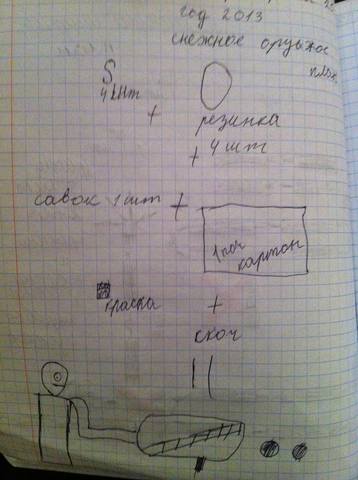 год 2013
снежное орудие
план
S
4 шт
+
резинка
+ 4 шт
савок 1 шт +
1 пач
картон
краска
+
скоч